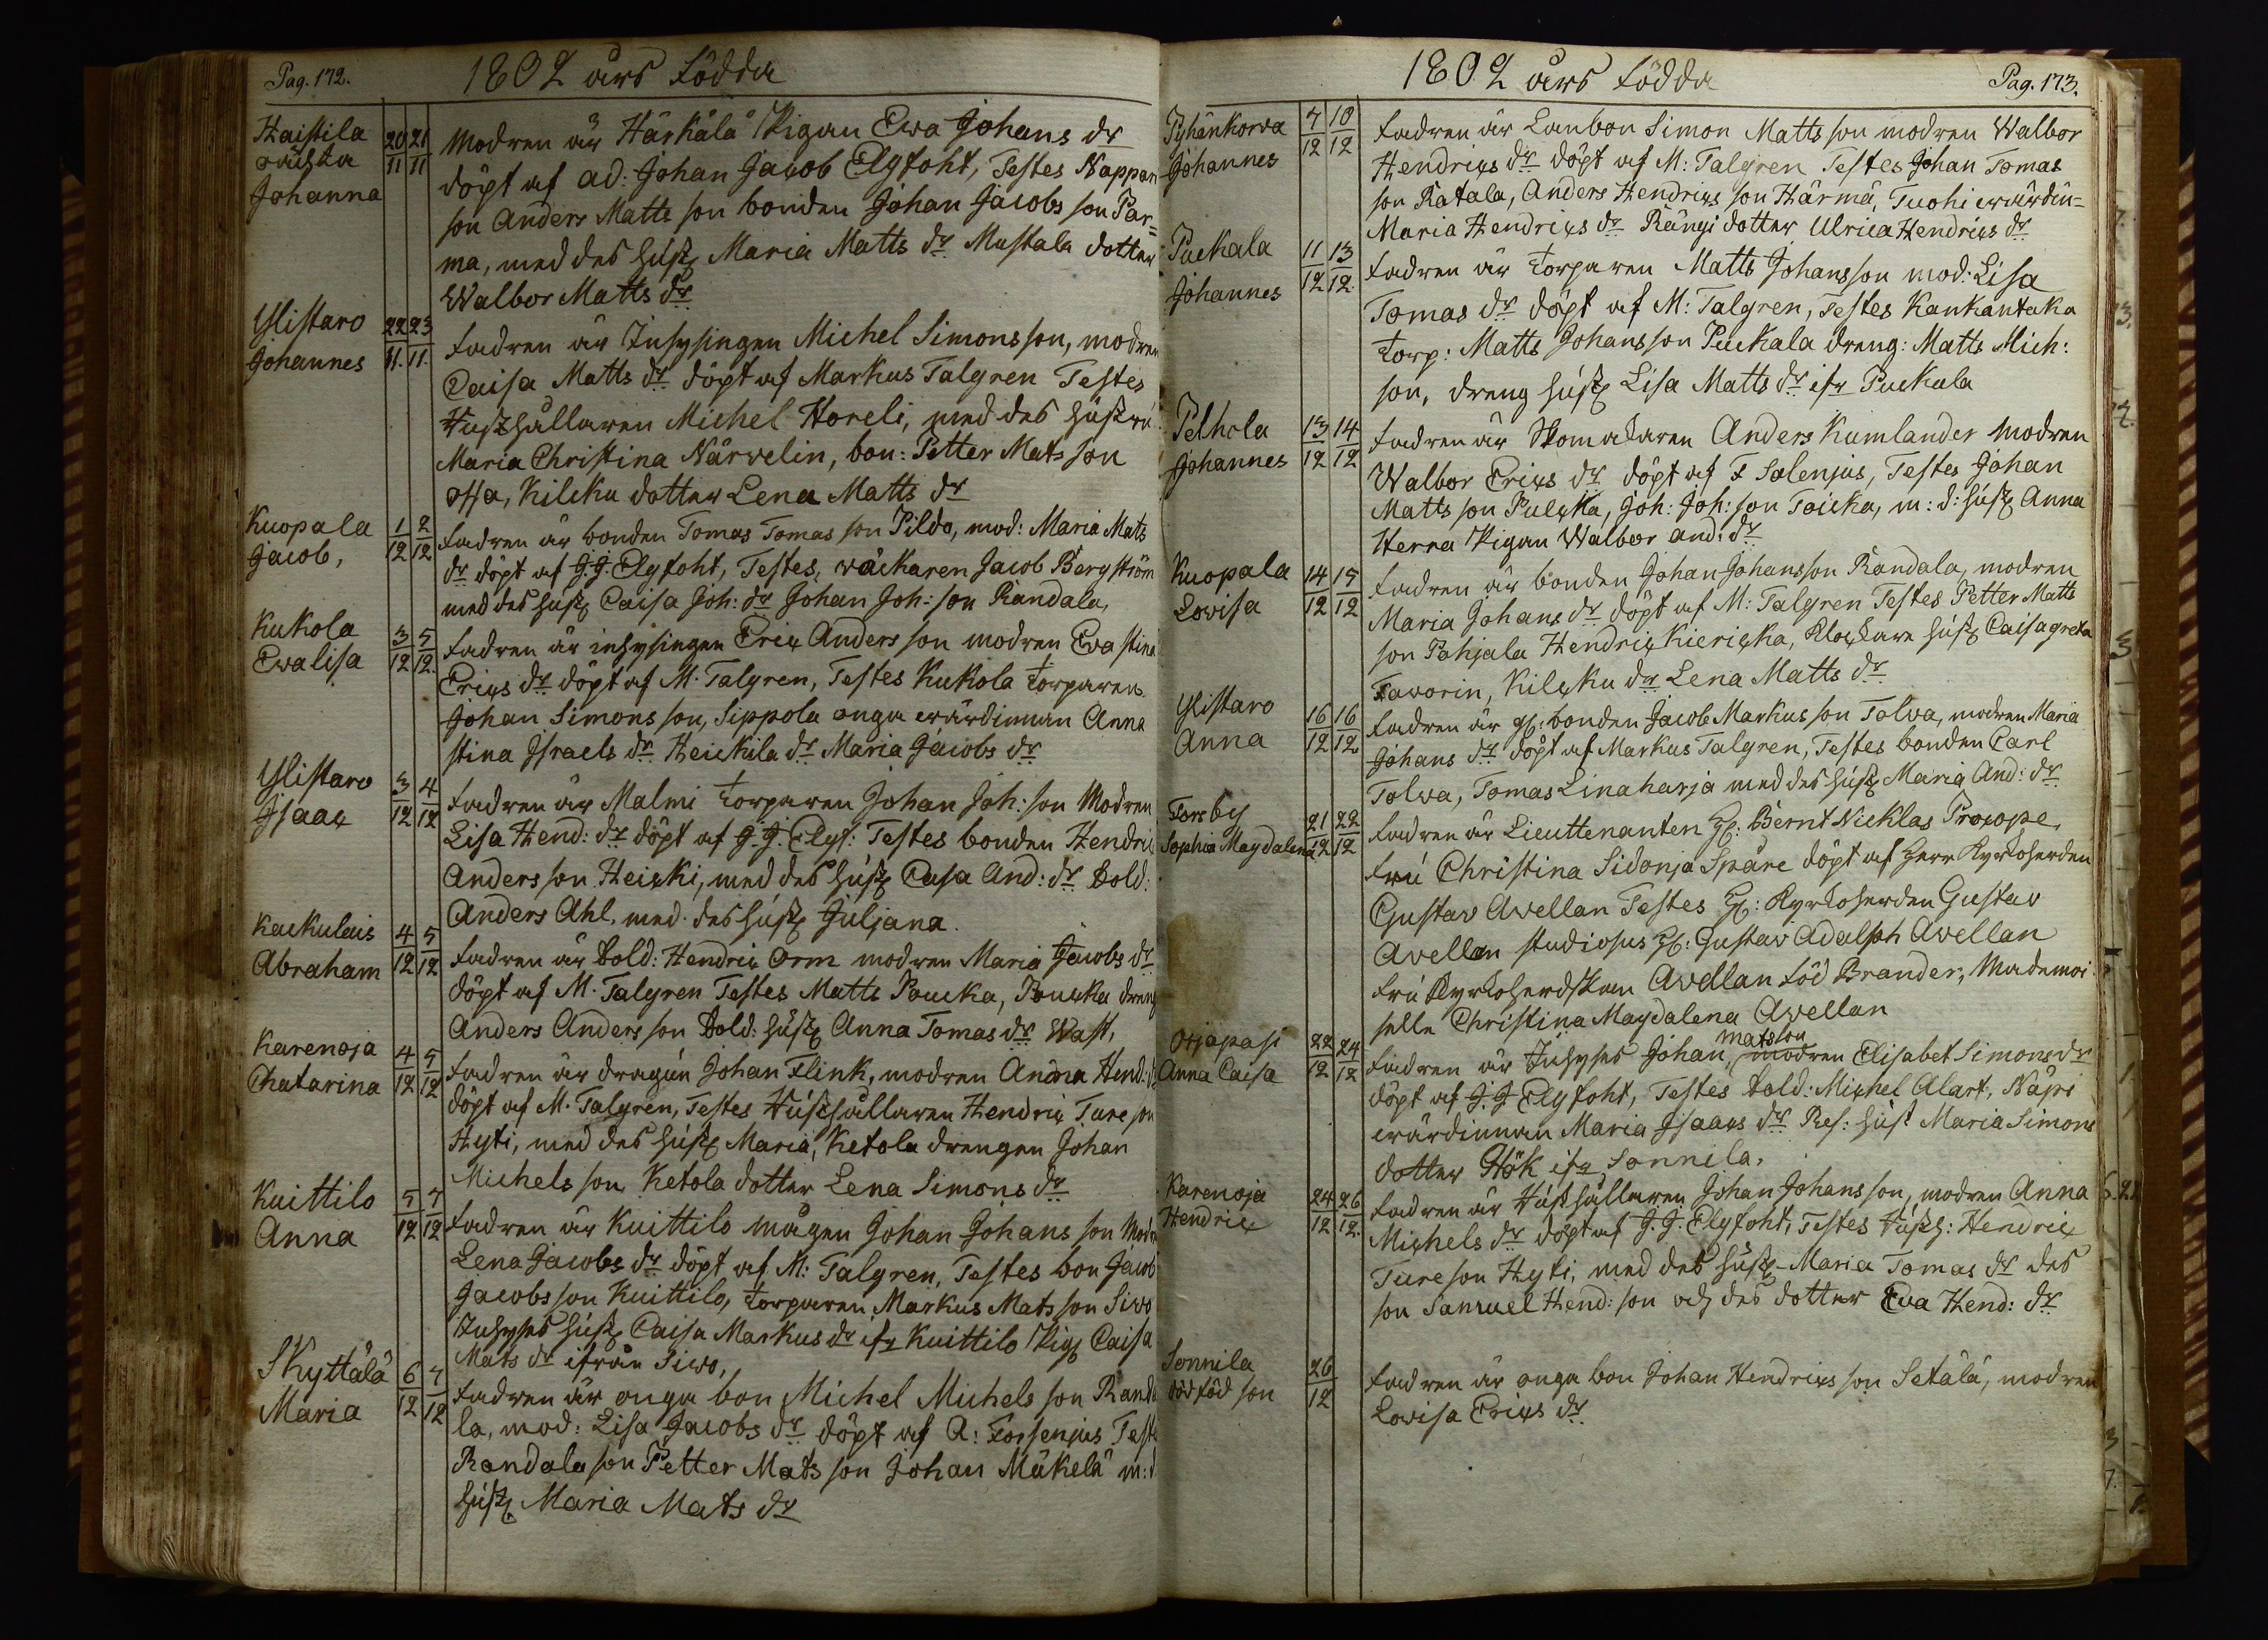 Pag. 172.
1802 års födda
Haistila
oächta
Johanna
20/11 21/11
modren är Härkälä Pigan Ewa Johans dr
döpt af ad: Johan Jacob Elgfoht, Testes Nappari
son Anders Matts son bonden Johan Jacobs son Par=
ma, med des hust. Maria Matts dr Mustala dotter
Walbor Matts dr
Ylistaro
Johannes
22/11. 23/11.
fadren är Inhysingen Michel Simonsson, modren
Caisa Matts dr döpt af Markus Talgren Testes
Hushållaren Michel Horeli, med des hustru
Maria Christina Närvelin, bon: Petter Mats son
Ossa, Kilcku dotter Lena Matts dr
Kuopala
Jacob,
1/12 2/12
fadren är bonden Tomas Tomas son Pildo, mod: Maria Mats
dr döpt af J.J. Elgfoht, Testes, väckaren Jacob Bergström
med des hust. Caisa Joh: dr Johan Joh: son Randala,
Kukola
Ewalisa
3/12 5/12.
fadren är inhysingen Eric Anders son modren Ewa stina
Erics dr döpt af M. Talgren, Testes Kukola torparen
Johan Simons son, Sippola unga wärdinnan Anna
stina Israels dr Heickila dr Maria Jacobs dr
Ylistaro
Isaac
3/12 4/12
fadren är Malmi torparen Johan Joh: son Modren
Lisa Hend: dr döpt af J.J. Elgf: Testes bonden Hendric
Anders son Heicki, med des hust. Casa And: dr Sold:
Anders Ahl. med des hust. Juljana.
Kackulais
Abraham
4/12 5/12
fadren är Sold: Hendric Orm modren Maria Jacobs dr
döpt af M. Talgren Testes Matts Poucka, Poucka dreng
Anders Anders son Sold: hust. Anna Tomas dr Wast,
Karenoja
Chatarina
4/12 5/12
fadren är dragun Johan Flink, modren Anna Hend: dr
döpt af M. Talgren, Testes Hushållaren Hendric Ture son
Hyti, med des hust. Maria, Ketola drengen Johan
Michels son, Ketola dotter Lena Simons dr
Kuittilo
Anna
5/12 7/12
fadren är Kuittilo mågen Johan Johans son Modr
Lena Jacobs dr döpt af M: Talgren, Testes bon Jacob
Jacobs son Kuittilo, torparen Markus Mats son Siwo
Inhyses hust. Caisa Markus dr ifr Kuittilo Pig. Caisa
Mats dr ifrån Siwo,
Skyttälä
Maria
6/12 7/12
fadren är unga bon Michel Michels son Randa
la, mod: Lisa Jacobs dr döpt af A: Forsenjus Test
Randala son Petter Mats son Johan Mäkelä m: d
hust. Maria Mats dr
1802 års födda
Pag. 173.
Pyhänkorva
Johannes
7/12 10/12
fadren är Lanbon Simon Matts son modren Walbor
Hendrics dr döpt af M: Talgren Testes Johan Tomas
son Ratala, Anders Hendrics son Härmä, Tuohi wärdin=
Maria Hendrics dr Rängi dotter Ulrica Hendrics dr
Puckala
Johannes
11/12 13/12.
fadren är torparen Matts Johansson mod: Lisa
Tomas dr döpt af M: Talgren, Testes Kankantaka
torp: Matts Johansson Puckala dreng: Matts Mich:
son, dreng hust. Lisa Matts dr ifr Puckala
Pelhola
Johannes
13/12 14/12
fadren är Skomakaren Anders Kumlander modren
Walbor Erics dr döpt af F Salenjus, Testes Johan
Matts son Pulcka, Joh: Joh: son Toicka, m: d: hust. Anna
Herra Pigan Walbor and: dr
Kuopala
Lovisa
14/12 15/12
fadren är bonden Johan Johansson Randala, modren
Maria Johans dr döpt af M: Talgren Testes Petter Matts
son Pohjala Hendric Kiericka, Klockare hust. Caisagreta
Favorin, Kilcku dr Lena Matts dr
Ylistaro
Anna
16/12 16/12
fadren är gl: bonden Jacob Markus son Tolva, modren Maria
Johans dr döpt af Markus Talgren, Testes bonden Carl
Tolva, Tomas Linaharja med des hust. Maria And: dr
Forsby
Sophia Magdalena
21/12 22/12
fadren är Lieuttenanten H: Bernt Nicklas Procope,
fru Christina Sidonja Spåre döpt af herr Kyrkoherden
Gustav Avellan Testes H: Kyrkoherden Gustav
Avellan studiosus H: Gustav Adalph Avellan
fru Kyrkoherdskan Avellan föd Brander, Mademoi
selle Christina Magdalena Avellan
Orjapasi
Anna Caisa
22/12 24/12
matsson
fadren är Inhyses Johan, modren Elisabet Simons dr
döpt af J.J Elgfoht, Testes Sold: Michel Alart, Näpi
wärdinnan Maria Isaacs dr Res: hust Maria Simons
dotter Hök ifr Sonnila,
Karenoja
Hendric
24/12 26/12.
fadren är Hushållaren Johan Johansson, modren Anna
Michels dr döpt af J.J. Elgfoht, Testes Hush: Hendric
Tureson Hyti, med des hust. Maria Tomas dr des
son Samuel Hend: son och des dotter Eva Hend: dr
Sonnila
död föd son
26/12
fadren är unga bon Johan Hendrics son Setälä, modren
Lovisa Erics dr